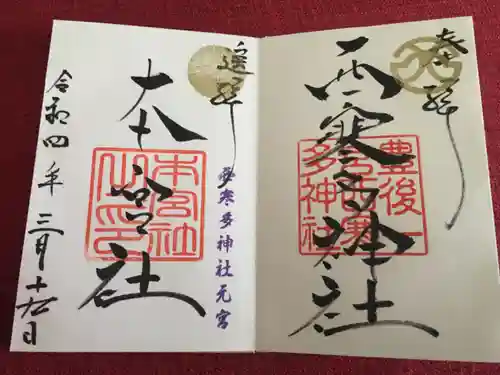 奉拝
西寒多神社
豊後一
宮西寒
多神社
遥拝
本宮社
本宮社
之印
西寒多神社元宮
令和四年三月